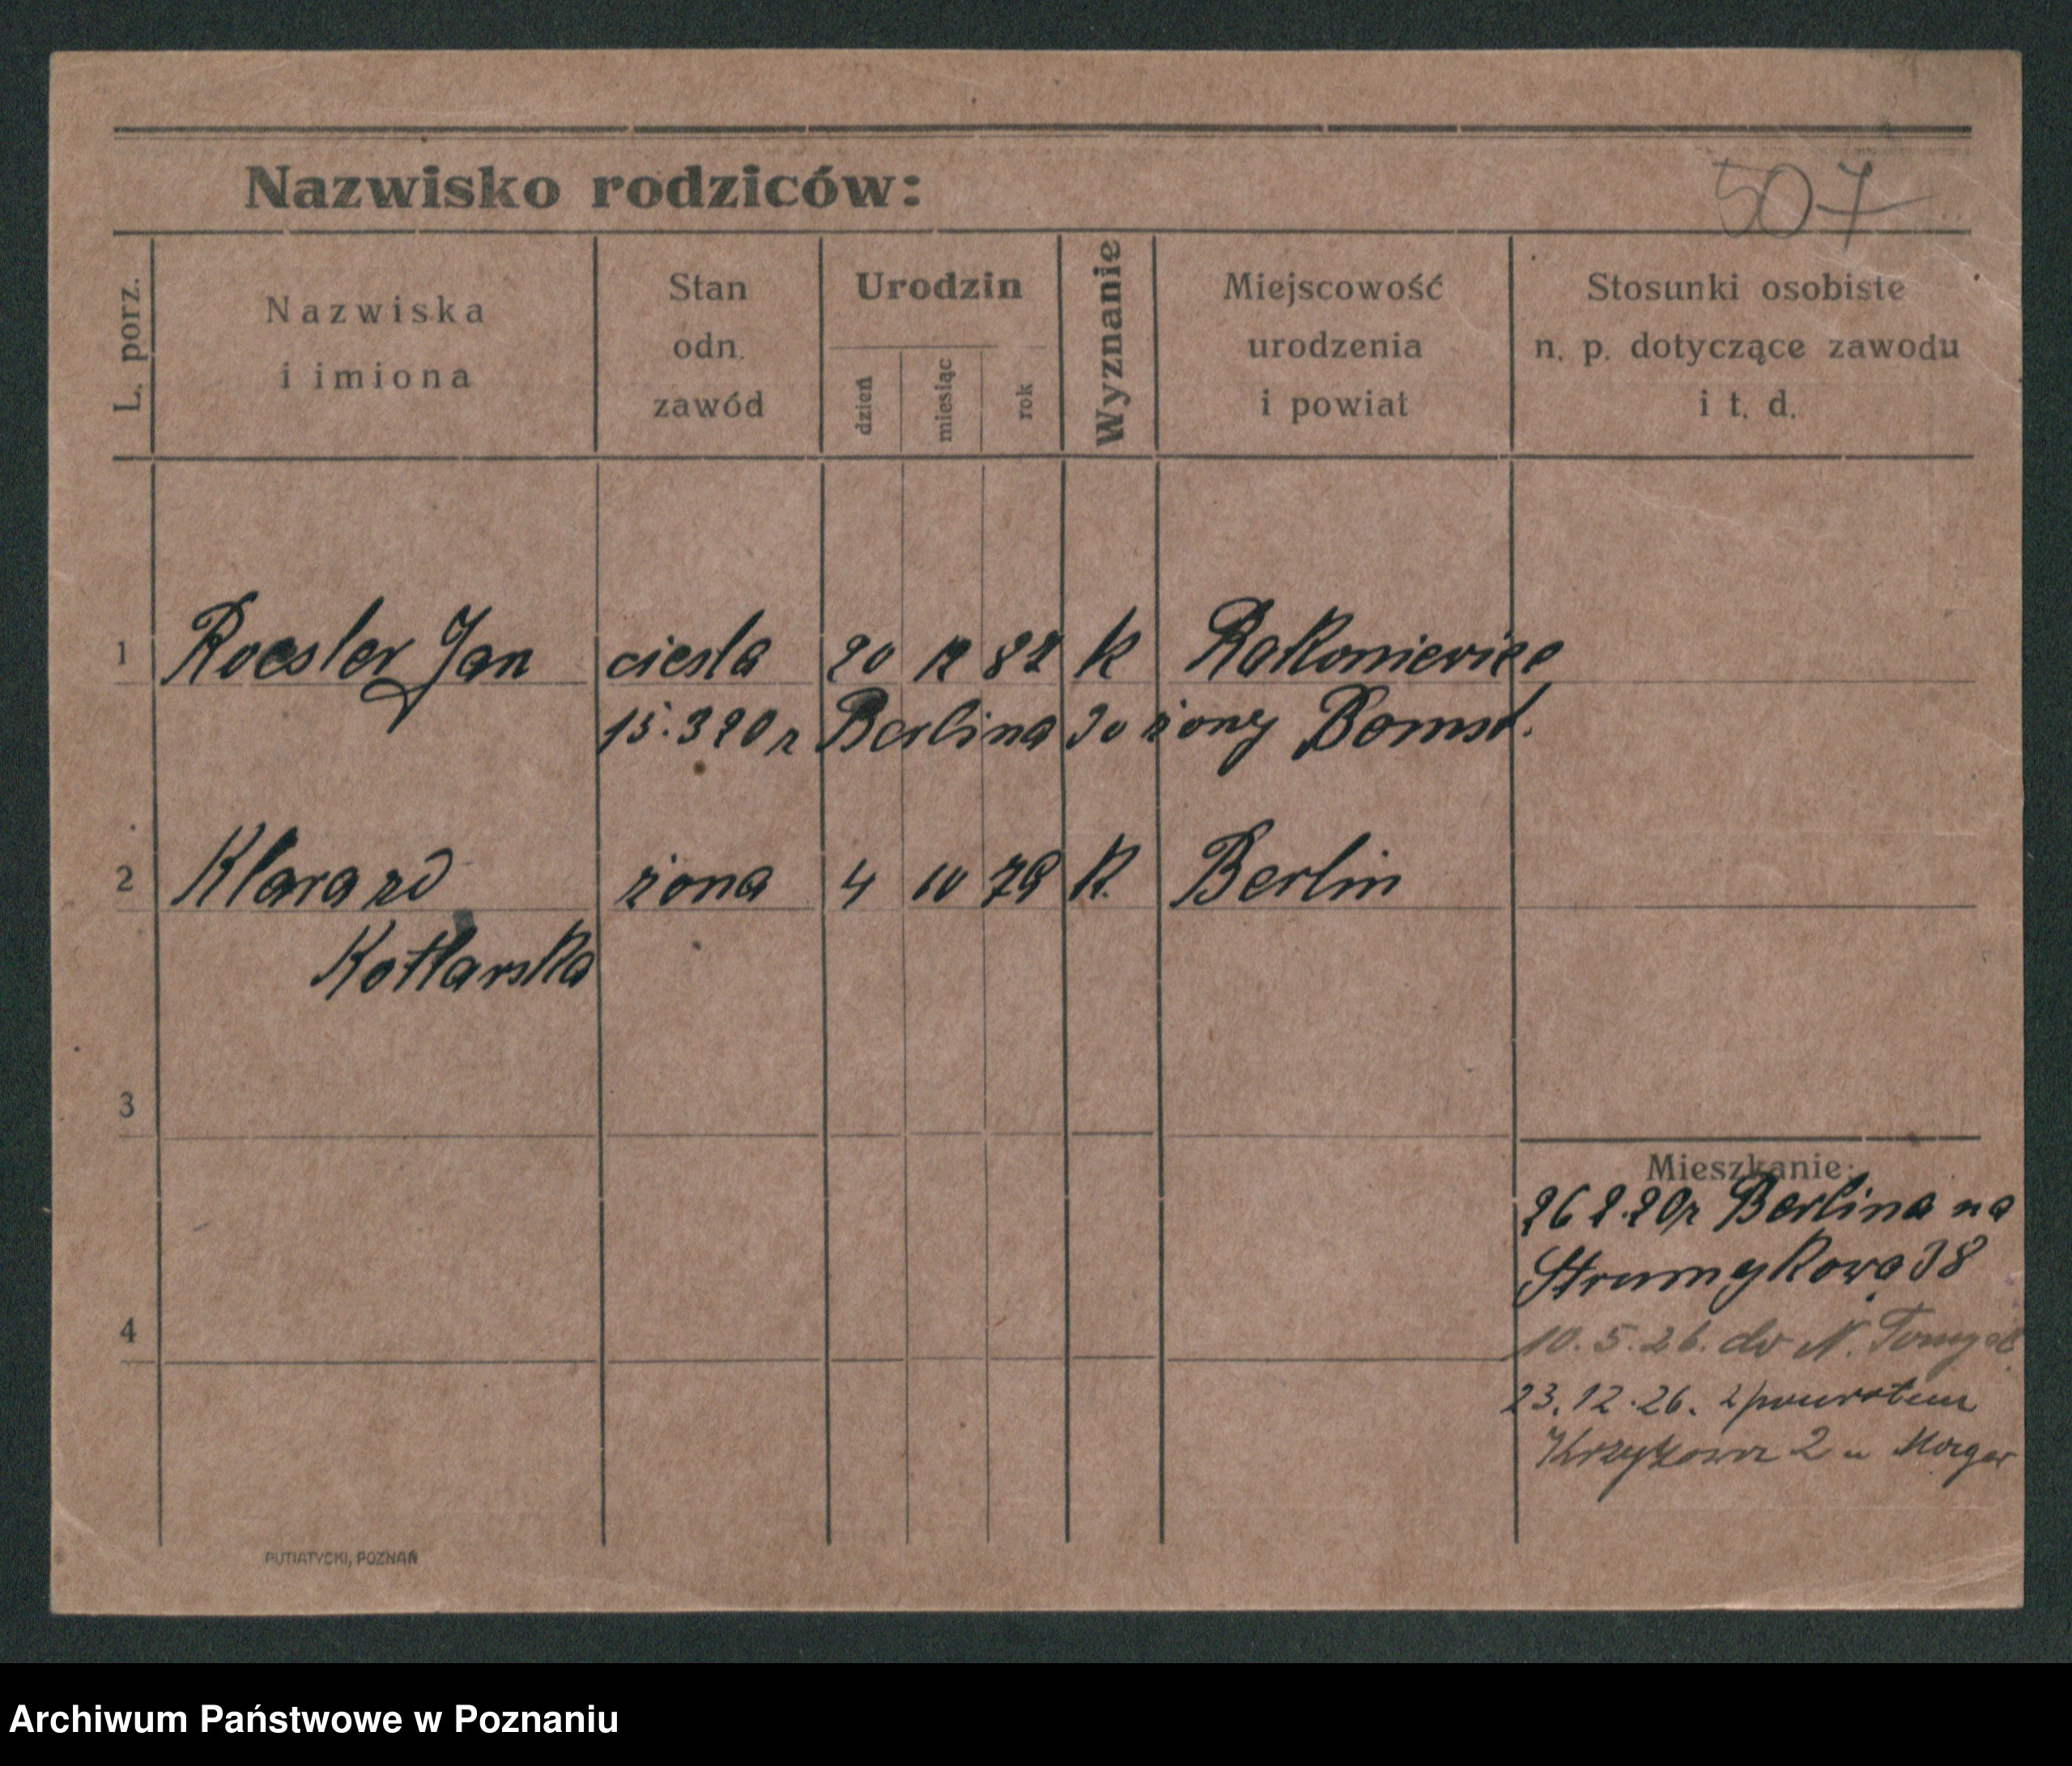 507
Nazwisko rodziców:
L. porz.
Nazwiska
i imiona
Stan
odn.
zawód
Urodzin
dzień
miesiąc
rok
Wyznanie
Miejscowość
urodzenia
i powiat
Stosunki osobiste
n. p. dotyczące zawodu
i t. d.
1 Roesler Jan ciesla 20 12 82 K Rakoniewice
15.3 20 r Berlina do żony Bomst.
2 Klara zd żona 4 10 79 K. Berlin
Kotlarska
3
4
Mieszkanie:
26 2.20 r Berlina na
Strumykowa 38
10.5.26. do N. Tomyśl
23.12.26. z powrotem
Krzyżowa 2 u
PUTIATYCKI, POZNAŃ
Archiwum Państwowe w Poznaniu